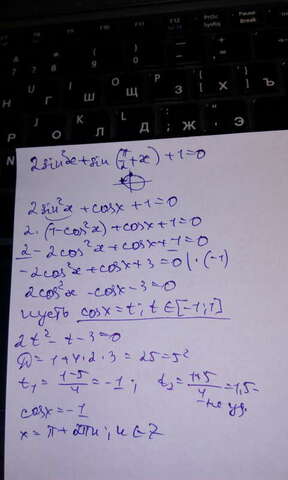 F7 F8 F9 F10 F11 F12 PrtSc SysRq Pause Break
Г Ш Щ З Х Ъ
О Л Д Ж Э
2sin²x + sin(π/2 + x) + 1 = 0
2sin²x + cosx + 1 = 0
2·(1-cos²x) + cosx + 1 = 0
2 - 2cos²x + cosx + 1 = 0
-2cos²x + cosx + 3 = 0 |·(-1)
2cos²x - cosx - 3 = 0
пусть cosx = t; t∈[-1;1]
2t² - t - 3 = 0
D = 1 + 4·2·3 = 25 = 5²
t₁ = (1-5)/4 = -1; t₂ = (1+5)/4 = 1,5 -
не уд.
cosx = -1
x = π + 2πn; n∈Z